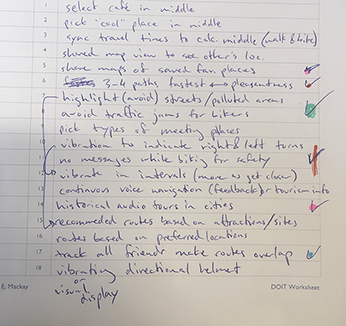 1 select café in middle
2 pick "cool" place in middle
3 sync travel times to calc. middle (walk & bike)
4 shared map view to see other's loc.
5 share maps of saved fav. places
6 3-4 paths fastest ↔ pleasantness
7 highlight (avoid) streets/polluted areas
8 avoid traffic jams for bikers
9 pick types of meeting places
10 vibration to indicate right & left turns
11 no messages while biking for safety
12 vibrate in intervals (more as get closer)
13 continuous voice navigation (feedback) or tourism info
14 historical audio tours in cities
15 recommeded routes based on attractions/sites
16 routes based on preferred locations
17 track all friends make routes overlap
18 vibrating directional helmet
or
visual display
E. Mackay
DOIT Worksheet